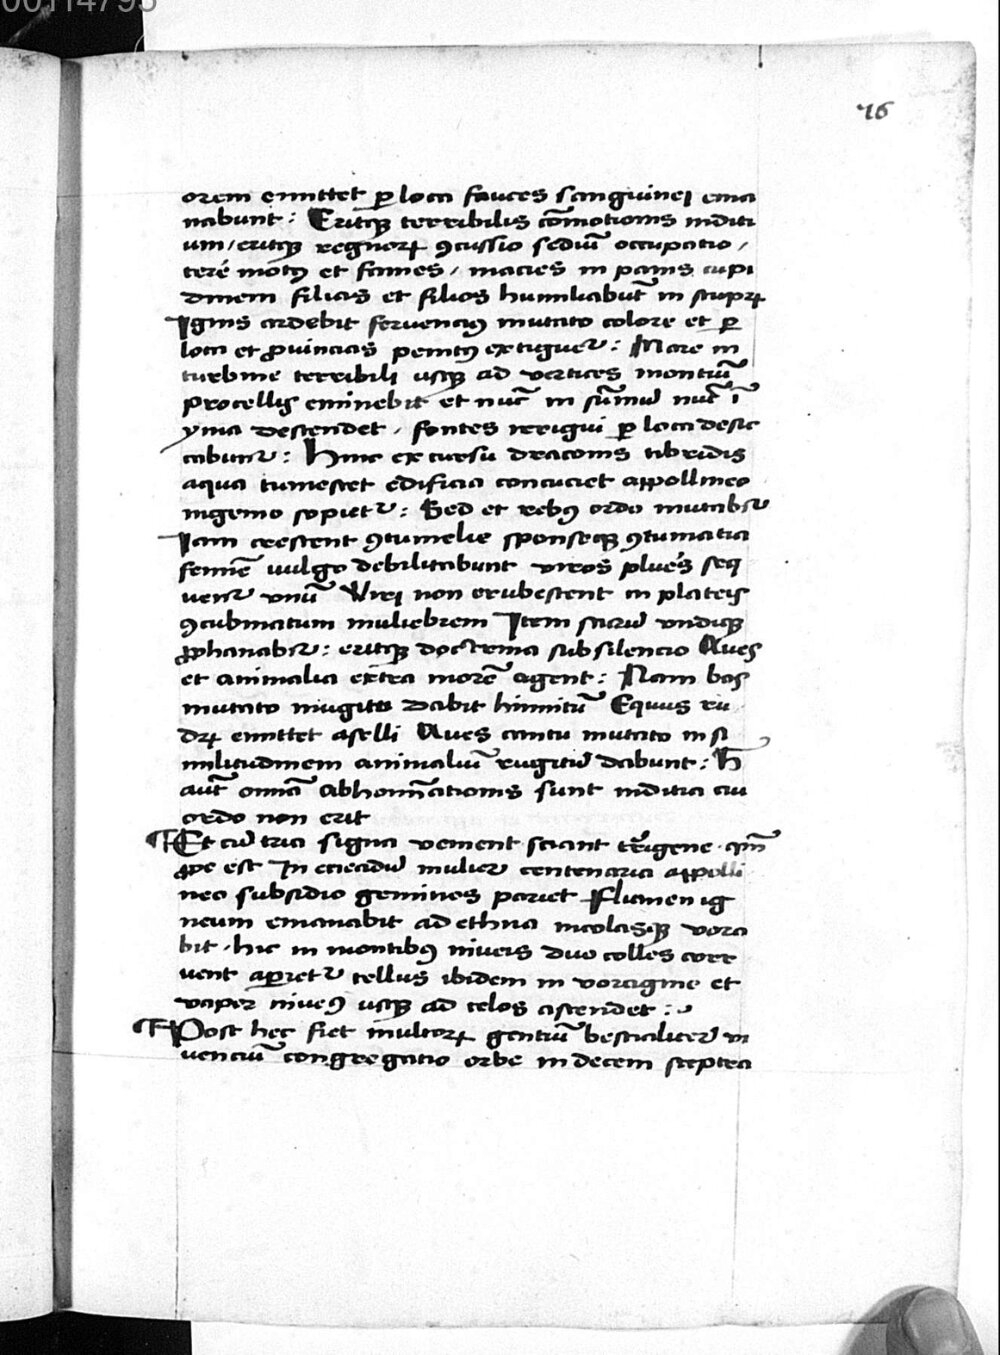 00114795
76
orem emittet ꝑ loca fauces sanguinei ema
nabunt : Eritqꝫ terribilis cōmotionis inditi
um / eritqꝫ regnorꝝ ꝯcussio sediū occupatio /
terē motꝰ et fames / macies in panis cupi
dinem filias et filios humiliabūt in stuprꝝ
Ignis ardebit feruenciꝰ mutato colore et ꝑ
loca et ꝓuincias penitꝰ extinguet᷑ : Mare in
turbine terribili usqꝫ ad vertices montiū
procellis eminebit et nūc in sūmū nūc ī
yma descendet / fontes irrigui ꝑ loca desic
cabunt᷑ : Hinc ex cursu draconis tibridis
aqua tumescet edificia concuciet appollineo
ingenio sopiet᷑ : Sed et rebꝰ ordo mutabit᷑
Iam crescent ꝯtumelie sponseqꝫ ꝯtumacia
femīe uulgo debilitabunt viros plures seq
uent᷑ vnū Viri non erubescent in plateis
ꝯcubinatum muliebrem Item sacrū vndiqꝫ
ꝓphanabit᷑ : eritqꝫ doctrina sub silencio Aues
et animalia extra morē agent : Nam bos
mutato mugitu dabit hinnitū Equus ru
dꝝ emittet aselli Aues cantu mutato in si
militudinem animaliū rugitū dabunt : H
aūt omīa abhomīationis sunt inditia cui
ordo non erit
¶ Et cū tria signa venient sciant tr̄igene qm̄
ꝓpe est In mulier centenaria appolli
neo subsidio geminos pariet Flumen ig
neum emanabit ad ethna incolasqꝫ vora
bit / hic in montibꝰ niueis duo colles corr
uent aꝑiet᷑ tellus ibidem in voragine et
vapor niueꝰ usqꝫ ad celos ascendet :
¶ Post hec fiet multorꝝ gentiū bestialiter vi
uenciū congregatio orbe in decem sceptra